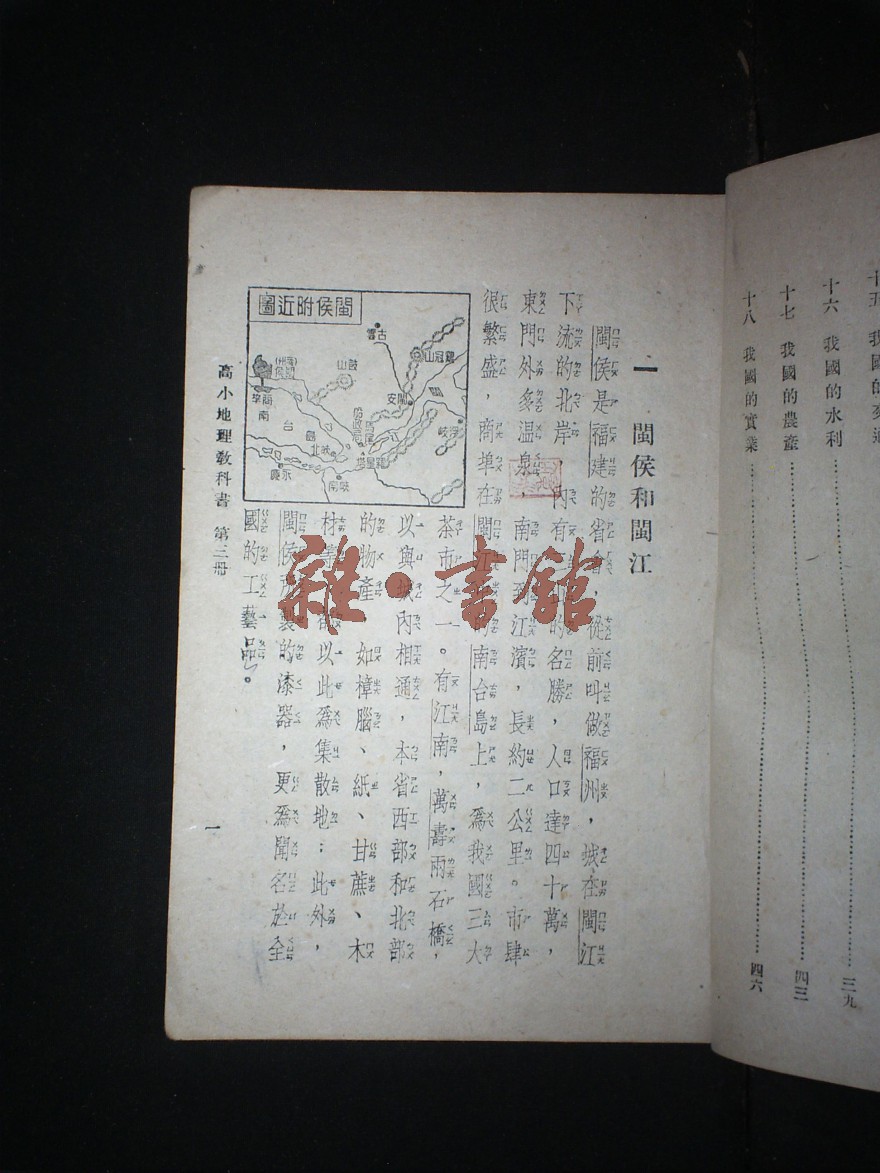 十五 我國的交通
三九
十六 我國的水利
十七 我國的農產
四三
十八 我國的實業
四六
一 閩侯和閩江
閩侯是福建的省會，從前叫做福州，城在閩江
下流的北岸，內有的名勝，人口達四十萬，
東門外多溫泉，南門到江濱，長約二公里。市肆
很繁盛，商埠在閩江的南台島上，爲我國三大
茶市之一。有江南，萬壽兩石橋，
以與城內相通，本省西部和北部
的物產，如樟腦、紙、甘蔗、木
材等，都以此爲集散地；此外，
閩侯所製的漆器，更爲聞名於全
國的工藝品。
閩侯附近圖
古雲
鼓山
冠山
閩安
閩侯
南
台
島
馬尾
羅星塔
峽北
峽南
永慶
高小地理教科書 第三册
一
雜·書館